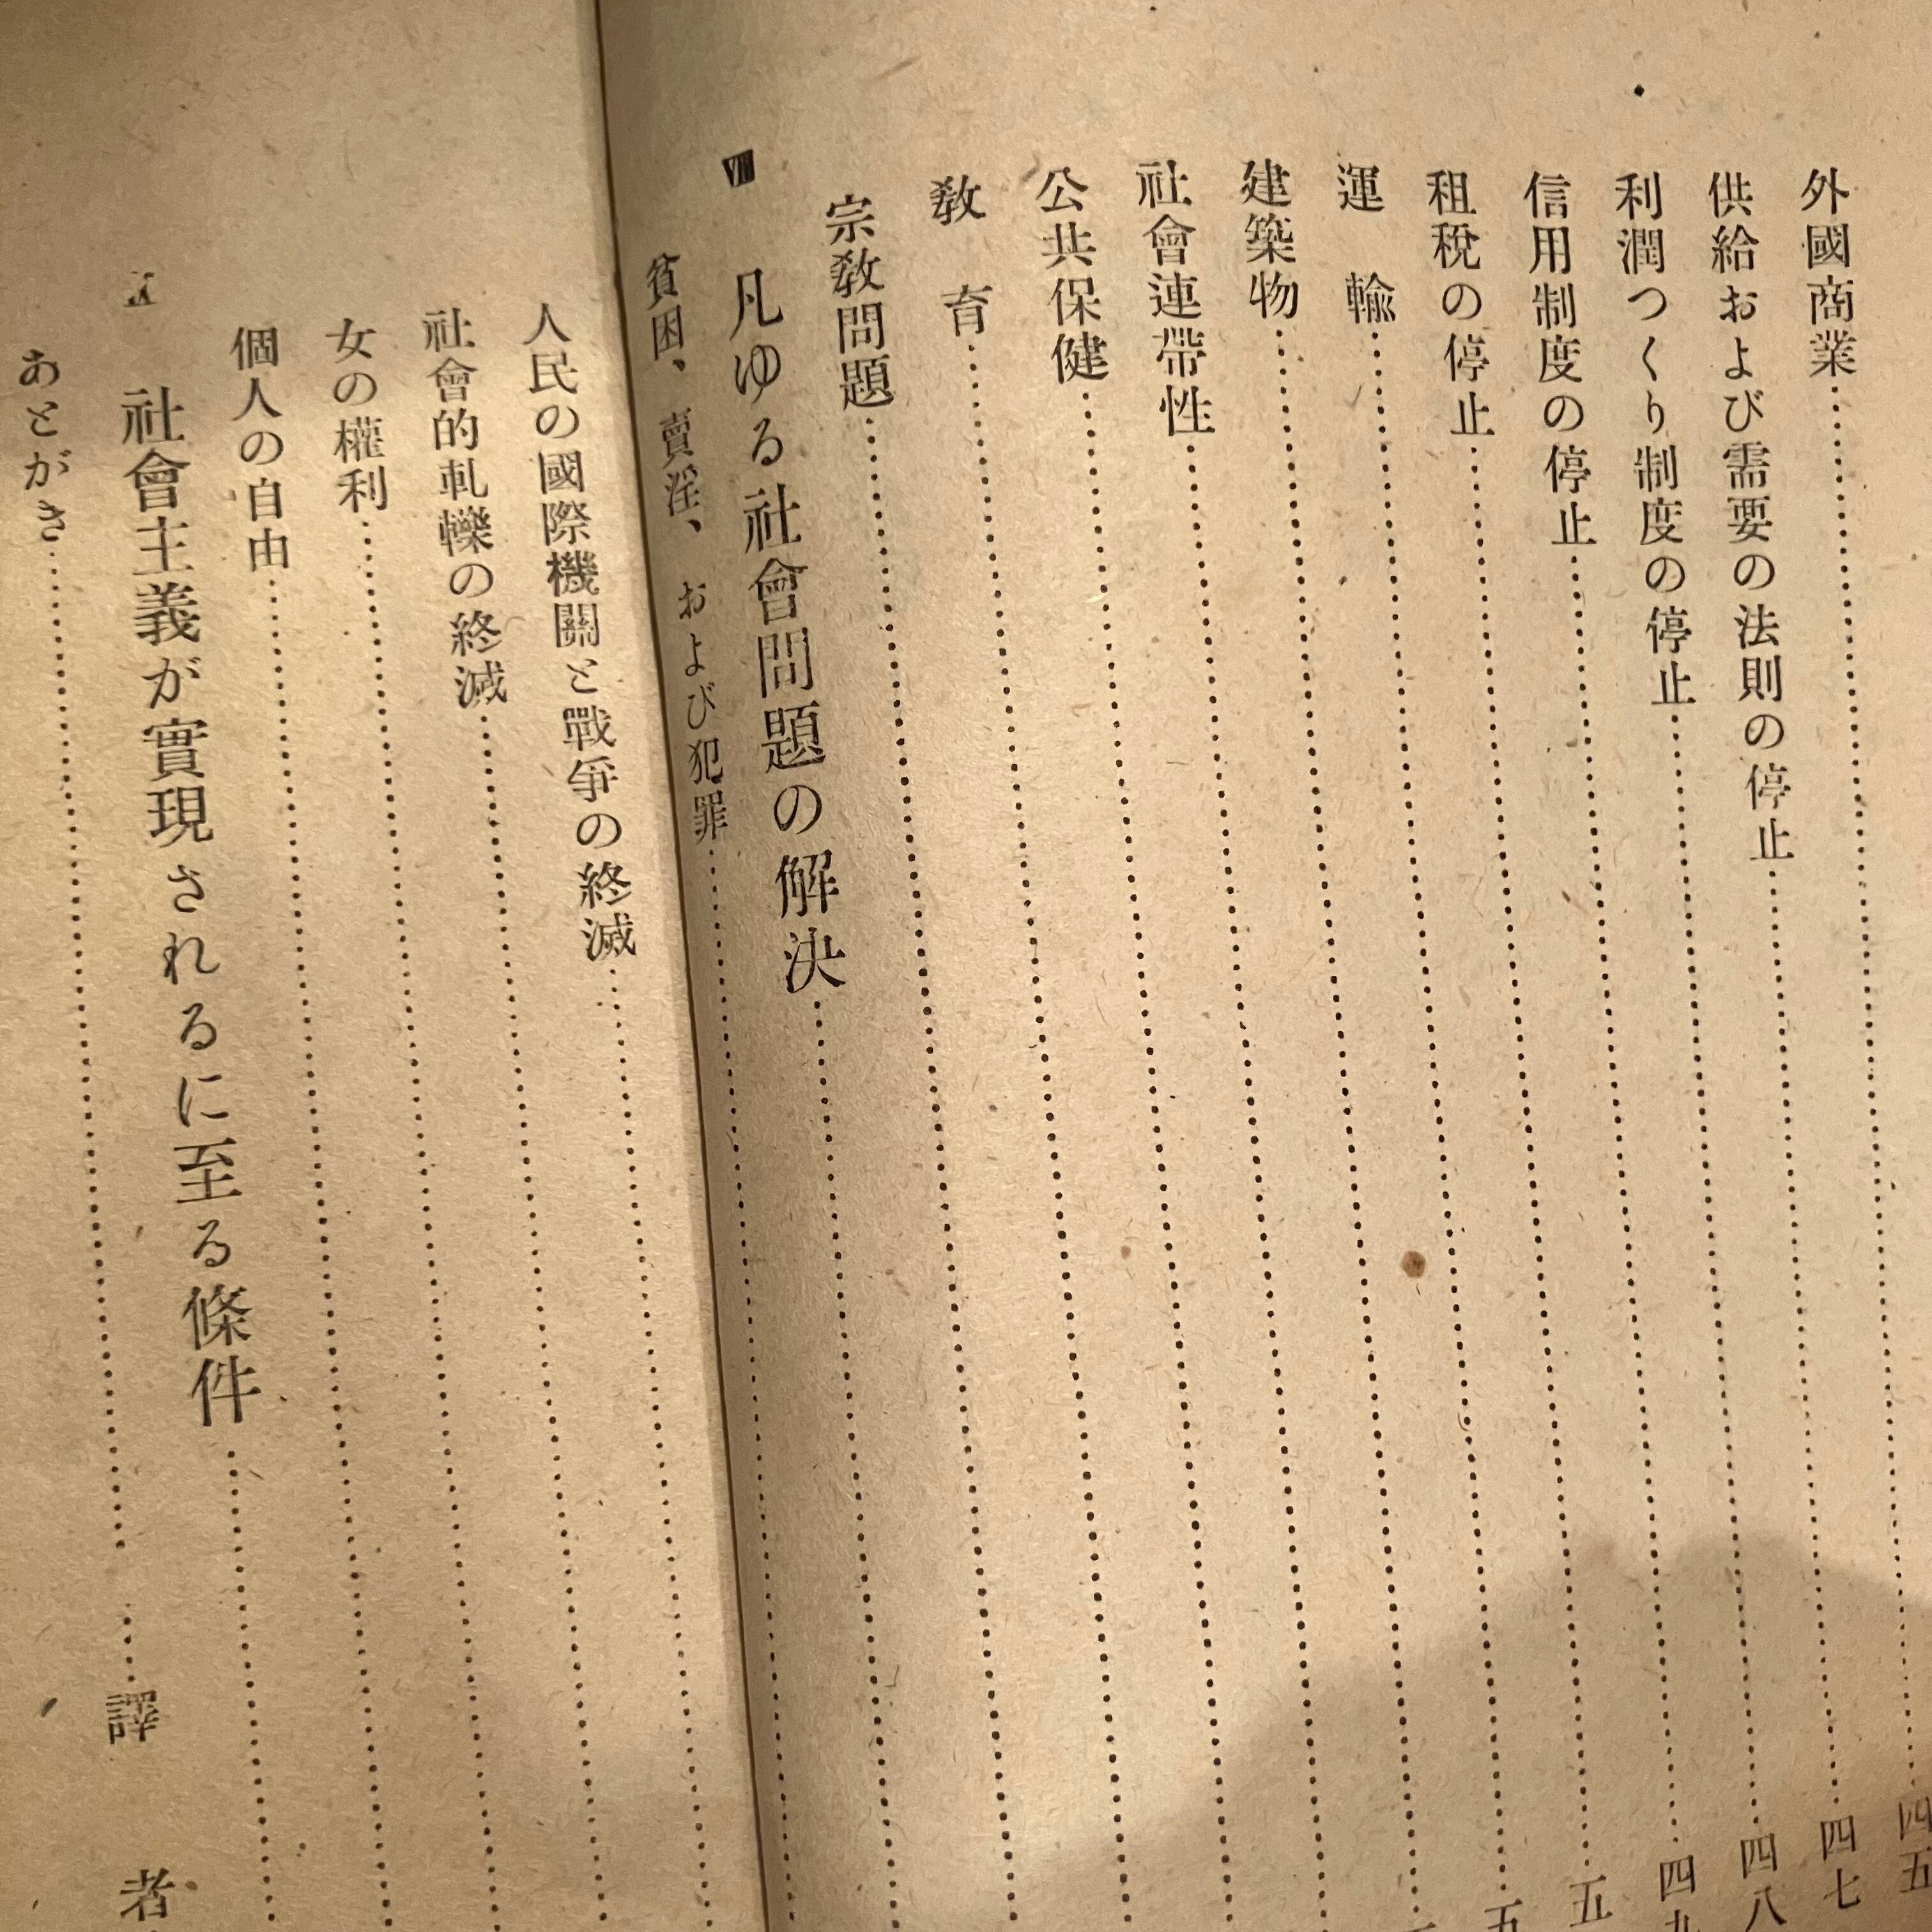 外國商業……四五
供給および需要の法則の停止……四七
利潤つくり制度の停止……四八
信用制度の停止……四九
租稅の停止……五
運　輸……五
建築物……
社會連帶性……
公共保健……
敎　育……
宗敎問題……
Ⅷ　凡ゆる社會問題の解決……
貧困、賣淫、および犯罪……
人民の國際機關と戰爭の終滅……
社會的軋轢の終滅……
女の權利……
個人の自由……
社會主義が實現されるに至る條件……
あとがき……譯　者